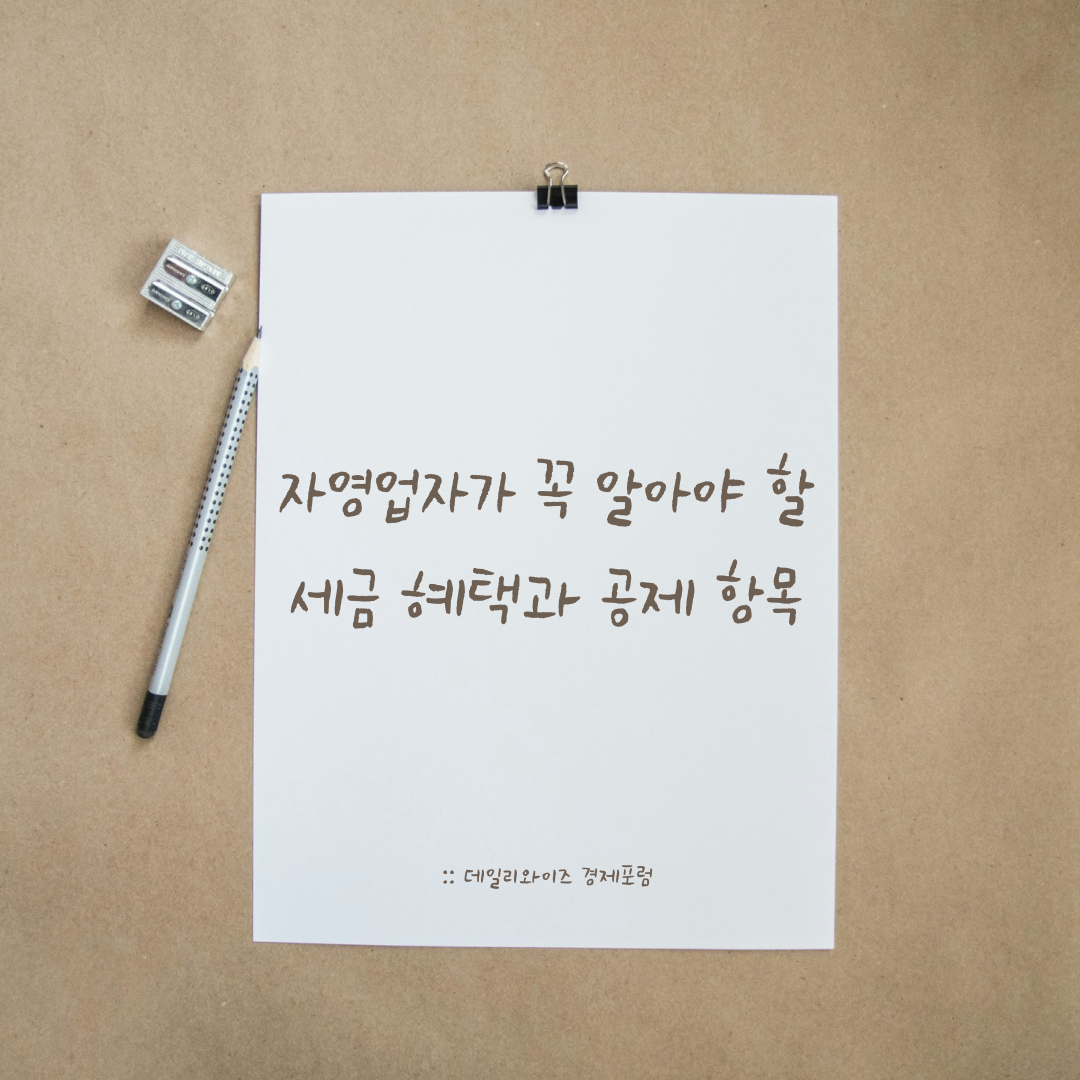 자영업자가 꼭 알아야 할
세금 혜택과 공제 항목
:: 데일리와이즈 경제포럼